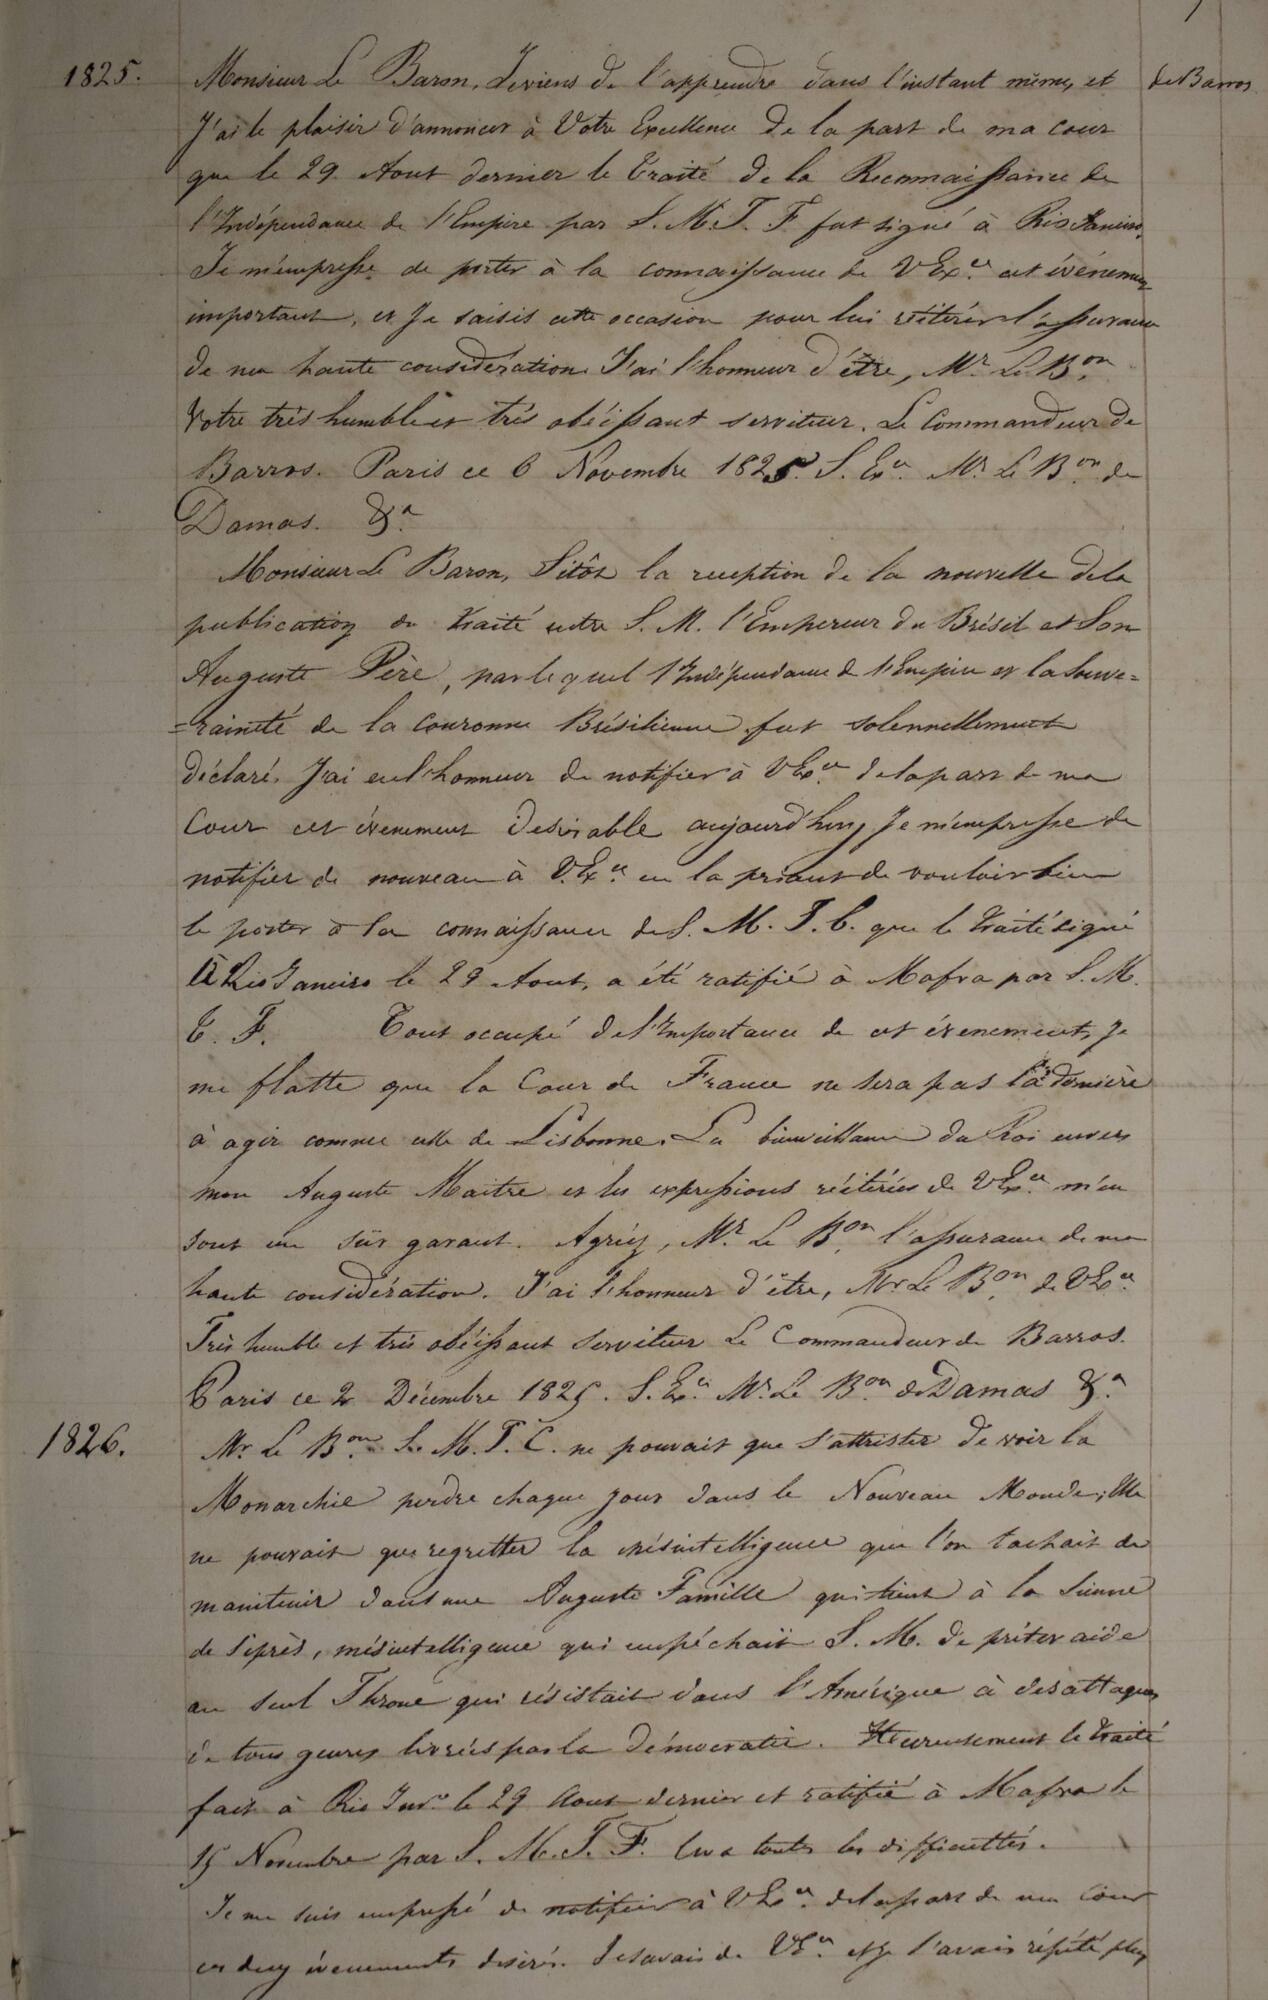 1825. Monsieur Le Baron, Je viens de l'apprendre dans l'instant même, et de Barros
J'ai le plaisir d'annoncer à Votre Excellence de la part de ma cour
que le 29 Aout dernier le traité de la Reconnaissance de
l'Indépendance de l'Empire par S. M. T. F. fut signé à Rio Janeiro.
Je m'empresse de porter à la connaissance de V Exce cet évènement
important, et Je saisis cette occasion pour lui réitérer l'assurance
de ma haute considération J'ai l'honneur d'être, Mr Le Bon
Votre très humble et très obéissant serviteur. Le Commandeur de
Barros. Paris ce 6 Novembre 1825. S. Exce Mr Le Bon de
Damas. &a
Monsieur Le Baron, Sitôt la reception de la nouvelle de la
publication du traité entre S. M. l'Empereur du Brésil et Son
Auguste Père, par lequel l'Indépendance de l'Empire et la Souve=
=raineté de la Couronne Brésilienne fut solennellement
déclaré, J'ai eu l'honneur de notifier à V Exce de la part de ma
Cour cet évenement desirable aujourd'huy Je m'empresse de
notifier de nouveau à V. Exce en la priant de vouloir bien
le porter à la connaissance de S. M. T. C. que le traité signé
à Rio Janeiro le 29 Aout, a été ratifié à Mafra par S. M.
T. F. Tout occupé de l'Importance de cet évenement, Je
me flatte que la Cour de France ne sera pas la dernière
à agir comme celle de Lisbonne. La bienveillance du Roi envers
mon Auguste Maitre et les expressions réitérées de V Exce m'en
sont un sûr garant. Agréez, Mr Le Bon l'assurance de ma
haute considération. J'ai l'honneur d'être, Mr Le Bon de V Exce
Très humble et très obéissant Serviteur Le Commandeur de Barros.
Paris ce 2 Décembre 1825. S. Exce Mr Le Bon de Damas &a
1826. Mr Le Bon S. M. T. C. ne pouvait que s'attrister de voir la
Monarchie perdre chaque jour dans le Nouveau Monde; Elle
ne pouvait que regretter la mésintelligence que l'on tachait de
manitenir dans une Auguste Famille qui tient à la Sienne
de si près, mésintelligence qui empéchait S. M. de prêter aide
au seul Throne qui résistait dans l'Amérique à des attaques
de tous genres livrées par la démocratie. Heureusement le traité
fait à Rio Janro le 29 Aout dernier et ratifié à Mafra le
15 Novembre par S. M. T. F. leva toutes les difficultés.
Je me suis empressé de notifier à V Exce de la part de ma Cour
ces deux évenements desirés. Je savais de V Exce et Je l'avais répété plus